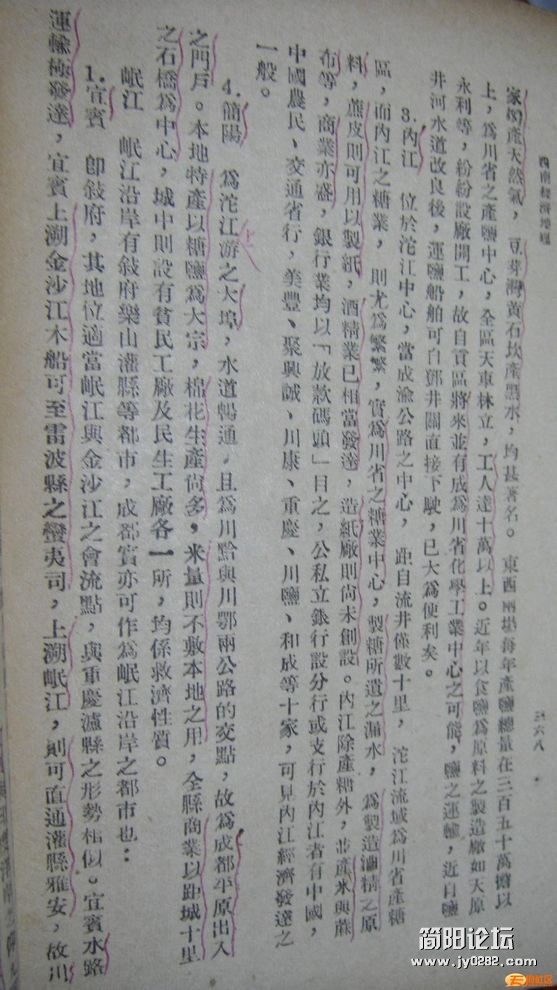 西南經濟地理
三六八
家塲產天然氣，豆芽灣黃石坎產黑水，均甚著名。東西兩塲每年產鹽總量在三百五十萬擔以
上，爲川省之產鹽中心，全區天車林立，工人達十萬以上。近年以食鹽爲原料之製造廠如天原
永利等，紛紛設廠開工，故自貢區將來並有成爲川省化學工業中心之可能，鹽之運輸，近自鹽
井河水道改良後，運鹽船舶可自鄧井關直接下駛，已大爲便利矣。
3.內江　位於沱江中心，當成渝公路之中心，距自流井僅數十里，沱江流域爲川省產糖
區，而內江之糖業，則尤爲繁繁，實爲川省之糖業中心，製糖所遺之漏水，爲製造酒精之原
料，蔗皮則可用以製紙，酒精業已相當發達，造紙廠則尚未創設。內江除產糖外，並產米與蔴
布等，商業亦盛，銀行業均以「放款碼頭」目之，公私立銀行設分行或支行於內江者有中國，
中國農民、交通省行，美豐、聚興誠、川康、重慶、川鹽、和成等十家，可見內江經濟發達之
一般。
4.簡陽　爲沱江游之大埠，水道暢通，且爲川黔與川鄂兩公路的交點，故爲成都平原出入
上
之門戶。本地特產以糖鹽爲大宗，棉花生產尚多，米量則不敷本地之用，全縣商業以距城十里
之石橋爲中心，城中則設有貧民工廠及民生工廠各一所，均係救濟性質。
岷江　岷江沿岸有敍府樂山灌縣等都市，成都實亦可作爲岷江沿岸之都市也：
1.宜賓　卽敍府，其地位適當岷江與金沙江之會流點，與重慶瀘縣之形勢相似。宜賓水路
運輸極發達，宜賓上溯金沙江木船可至雷波縣之蠻夷司，上溯岷江，則可直通灌縣雅安，故川
简阳论坛
www.jy0282.com